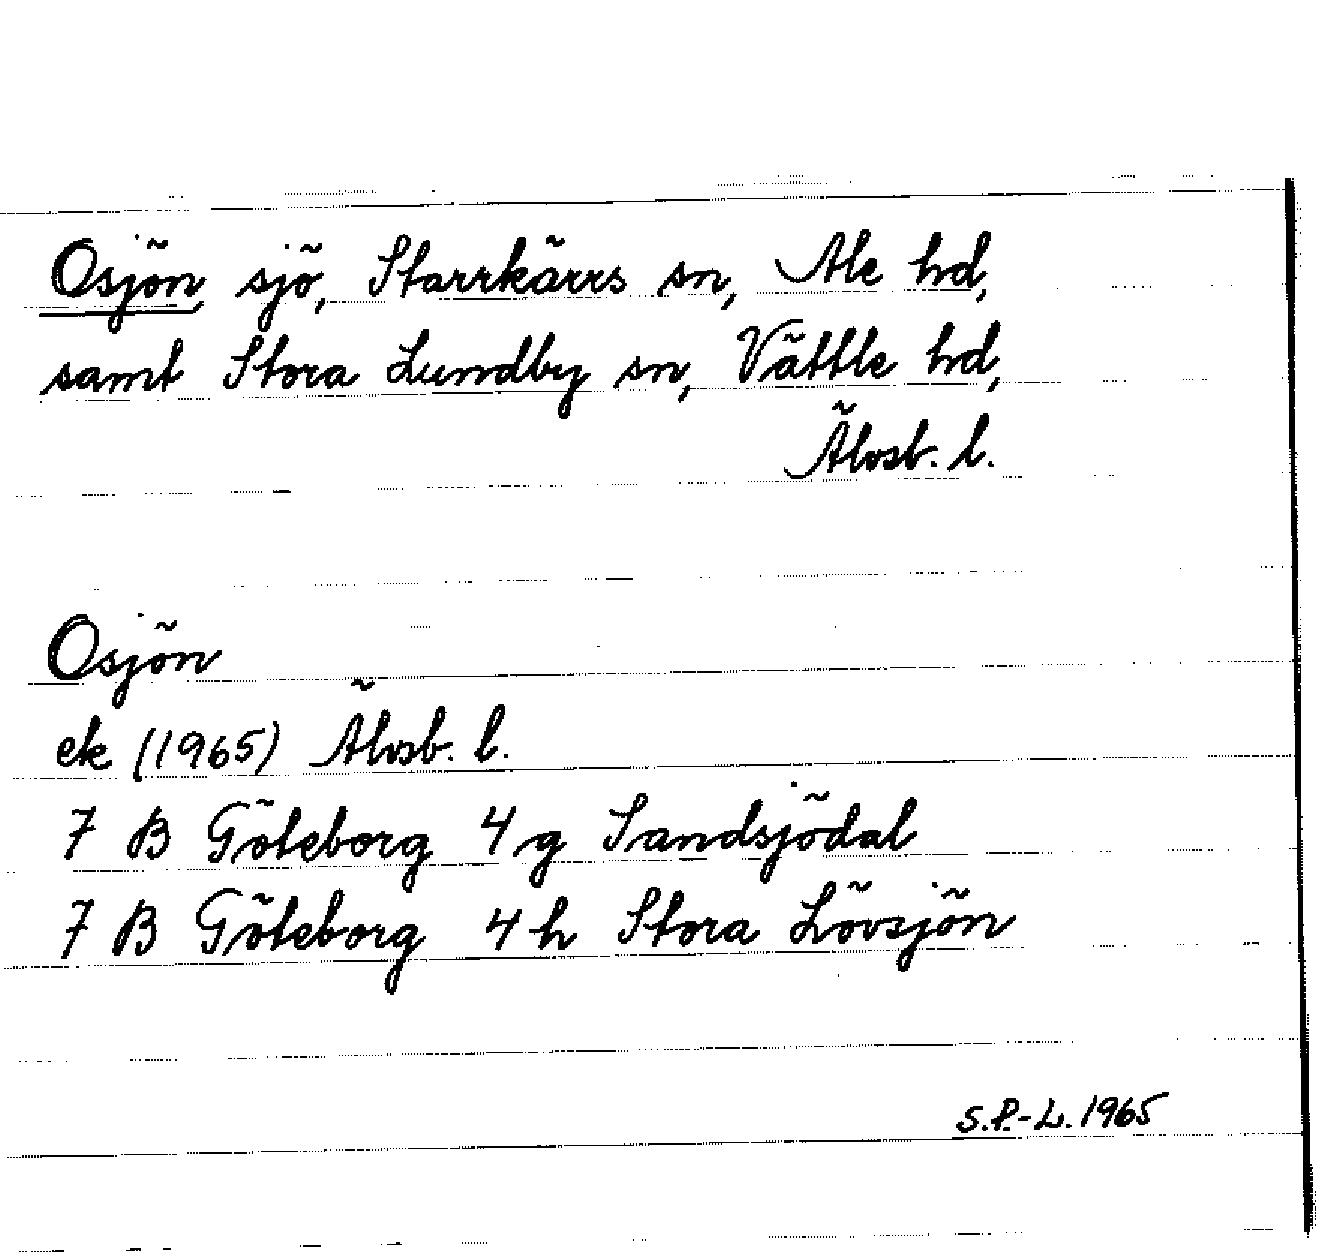 Osjön, sjö, Starrkärrs sn, Ale hd,
samt Stora Lundby sn, Vättle hd,
Älvsb. l.
Osjön
ek (1965) Älvsb. l.
7 B Göteborg 4 g Sandsjödal
7 B Göteborg 4 h Stora Lövsjön
S.P.-L. 1965